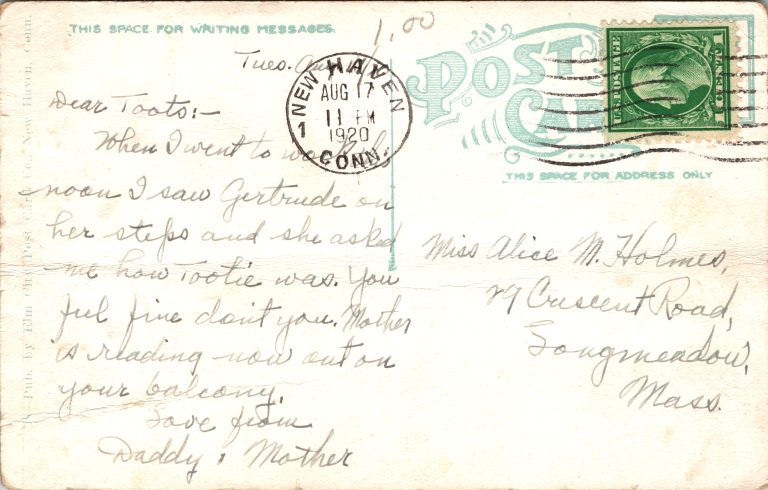 THIS SPACE FOR WRITING MESSAGES.
1.00
POST CARD
U.S. POSTAGE
1 CENT 1
NEW HAVEN
AUG 17
11 PM
1920
CONN.
1
THIS SPACE FOR ADDRESS ONLY
Pub. by Elm City Post Card Co. New Haven, Conn.
Tues.
Dear Toots:-
When I went to work
noon I saw Gertrude on
her steps and she asked
me how Tootie was. You
feel fine don't you. Mother
is reading now out on
your balcony.
Love from
Daddy & Mother
Miss Alice M. Holmes,
29 Crescent Road,
Longmeadow,
Mass.